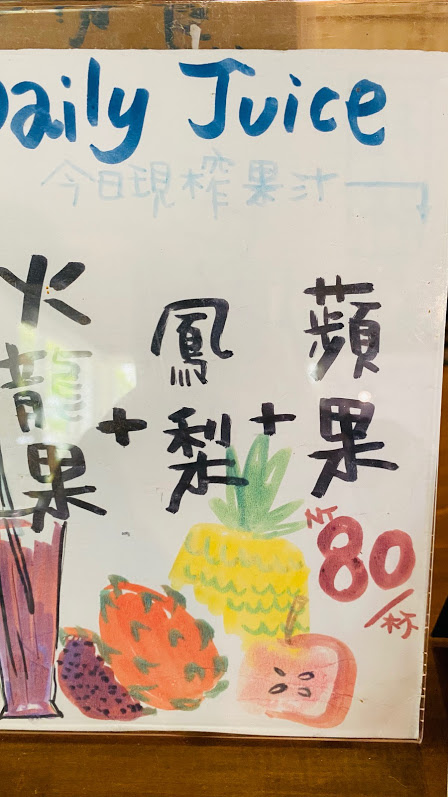 Daily Juice
今日現榨果汁
蘋果
+
鳳梨
+
火龍果
NT80/杯